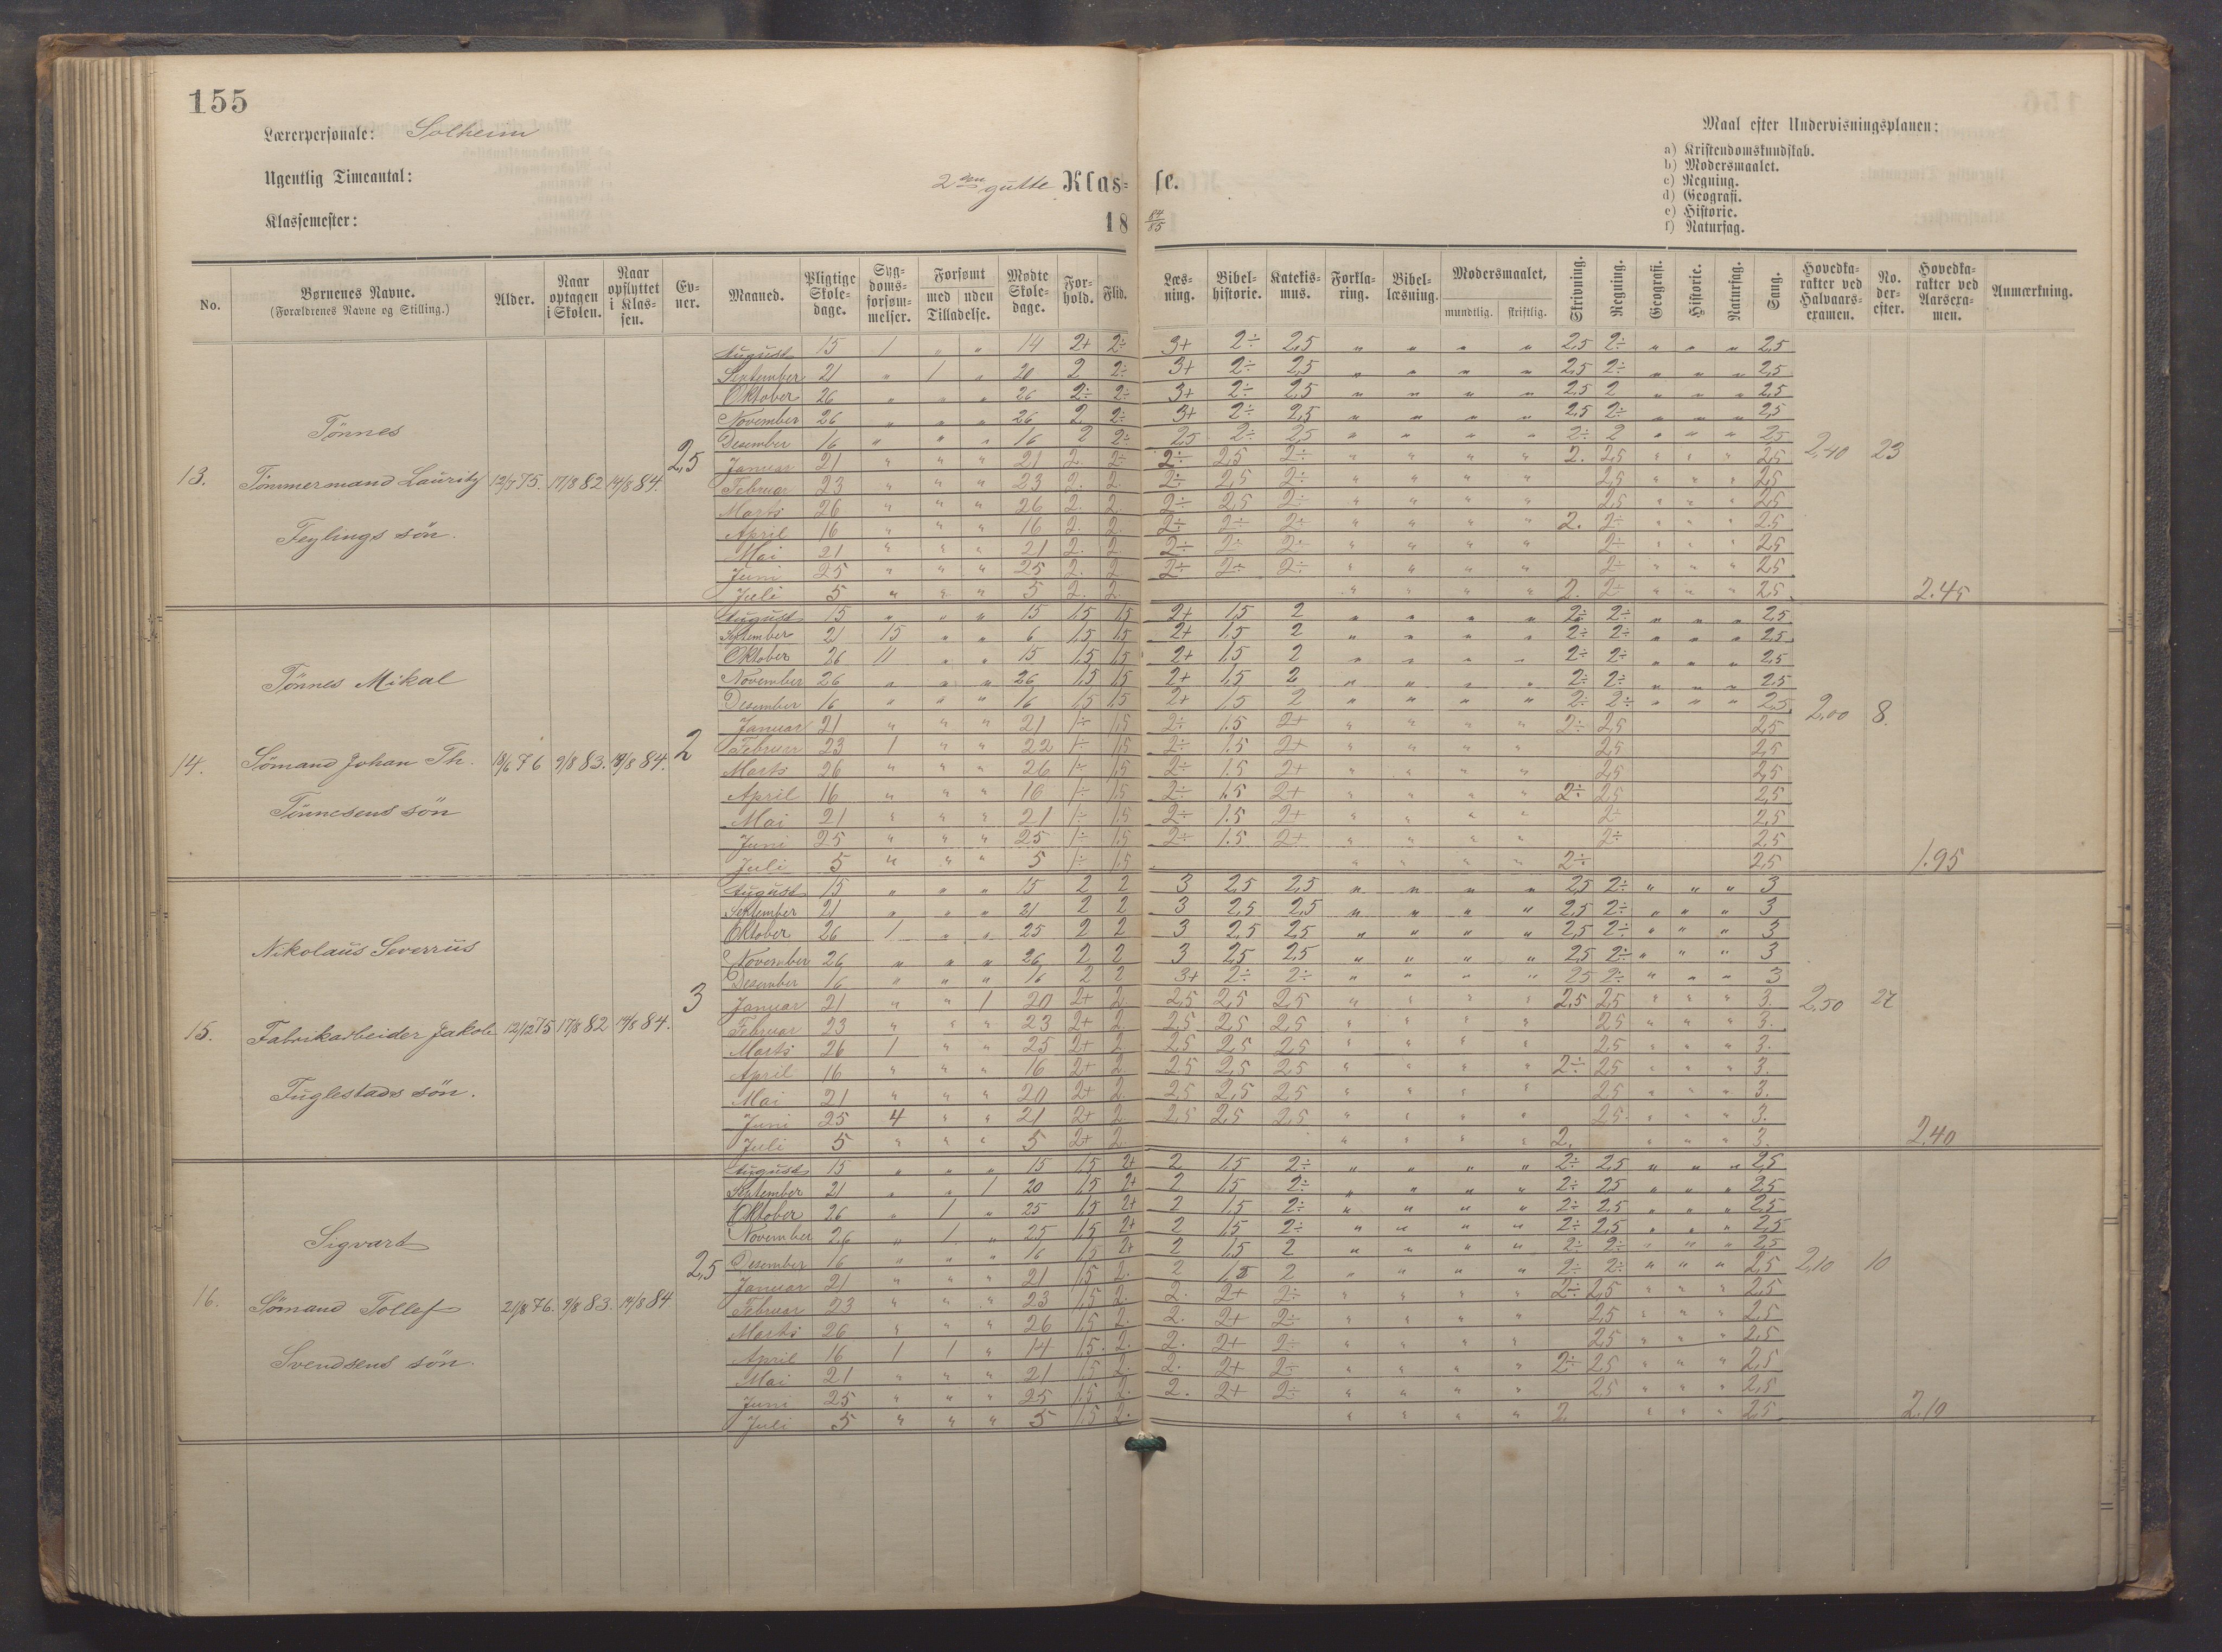 155
Lærerpersonale: Solheim
Ugentlig Timeantal:
Klassemester:
2den gutte Klas- se.
18 84/85
Maal efter Undervisningsplanen:
a) Kristendomskundskab.
b) Modersmaalet.
c) Regning.
d) Geografi.
e) Historie.
f) Naturfag.
No. | Børnenes Navne. (Forældrenes Navne og Stilling.) | Alder. | Naar optagen i Skolen. | Naar opflyttet i Klassen. | Evner. | Maaned. | Pligtige Skoledage. | Sygdomsforsømmelser. | Forsømt med uden Tilladelse. | Mødte Skoledage. | Forhold. | Flid. | Læsning. | Bibelhistorie. | Katekismus. | Forklaring. | Bibellæsning. | Modersmaalet, mundtlig. skriftlig. | Skrivning. | Regning. | Geografi. | Historie. | Naturfag. | Sang. | Hovedkarakter ved Halvaarsexamen. | No. derefter. | Hovedkarakter ved Aarsexamen. | Anmærkning.
August 15 1 " " 14 2+ 2÷ 3+ 2÷ 2,5 " " " " 2,5 2÷ " " " 2,5
September 21 " 1 " 20 2 2÷ 3+ 2÷ 2,5 " " " " 2,5 2÷ " " " 2,5
Oktober 26 " " " 26 2÷ 2÷ 3+ 2÷ 2,5 " " " " 2,5 2 " " " 2,5
November 26 " " " 26 2 2÷ 3+ 2÷ 2,5 " " " " 2,5 2÷ " " " 2,5
Tönnes
Desember 16 " " " 16 2 2÷ 2,5 2÷ 2,5 " " " " 2÷ 2 " " " 2,5
2,5 Januar 21 " " " 21 2. 2÷ 2÷ 2,5 2÷ " " " " 2. 2,5 " " " 2,5 2,40 23
13. Tömmermand Lauritz 12/3 75. 17/8 82 14/8 84. Februar 23 " " " 23 2. 2. 2÷ 2,5 2÷ " " " " 2,5 " " " 2,5
Marts 26 " " " 26 2. 2. 2÷ 2,5 2÷ " " " " 2,5 " " " 2,5
Feylings sön.
April 16 " " " 16 2. 2. 2÷ 2÷ 2÷ " " " " 2. 2÷ " " " 2.5
Mai 21 " " " 21 2. 2. 2÷ 2÷ 2÷ " " " " 2÷ " " " 2,5
Juni 25 " " " 25 2. 2 2÷ 2÷ 2÷ " " " " 2÷ " " " 2,5
Juli 5 " " " 5 2. 2 " " " " 2. 2÷ " " " 2,5 2.45
August 15 " " " 15 1,5 1,5 2+ 1,5 2 " " " " 2÷ 2÷ " " " 2,5
September 21 15 " " 6 1,5 1,5 2+ 1,5 2 " " " " 2÷ 2÷ " " " 2,5
Oktober 26 11 " " 15 1,5 1,5 2+ 1.5 2 " " " " 2÷ 2÷ " " " 2,5
Tönnes Mikal
November 26 " " " 26 1,5 1,5 2+ 1,5 2 " " " " 2÷ 2÷ " " " 2,5
Desember 16 " " " 16 1,5 1,5 2+ 1.5 2 " " " " 2÷ 2÷ " " " 2,5
2 Januar 21 " " " 21 1÷ 1,5 2÷ 1.5 2+ " " " " 2÷ 2,5 2,5 2,00 8.
Februar 23 1 " " 22 1÷ 1,5 2÷ 1.5 2+ " " " " 2,5 2,5
14. Sömand Johan Th. 18/6 76 9/8 83. 14/8 84. Marts 26 " " " 26 1÷ 1,5 2÷ 1.5 2+ " " " " 2,5 2,5
April 16 " " " 16 1÷ 1,5 2÷ 1.5 2+ " " " " 2÷ 2,5 2,5
Tönnesens sön
Mai 21 " " " 21 1÷ 1,5 2÷ 1.5 2+ " " " " 2÷ 2,5
Juni 25 " " " 25 1÷ 1,5 2÷ 1.5 2+ " " " " 2÷ 2,5
Juli 5 " " " 5 1÷ 1,5 " " " " 2÷ 2,5 1.95
August 15 " " " 15 2 2 3 2,5 2,5 " " " " 2,5 2÷ " " " 3
September 21 " " " 21 2 2 3 2,5 2,5 " " " " 2,5 2÷ " " " 3
Oktober 26 1 " " 25 2 2 3 2,5 2,5 " " " " 2,5 2÷ " " " 3
Nikolaus Severrus
November 26 " " " 26 2 2 3 2,5 2,5 " " " " 2,5 2÷ " " " 3
Desember 16 " " " 16 2 2 3+ 2÷ 2÷ " " " " 2,5 2÷ " " " 3
3 Januar 21 " " 1 20 2+ 2 2,5 2,5 2,5 " " " " 2,5 2,5 " " " 3. 2,50 27
15. Fabrikarbeider Jakob 12/12 75 17/8 82 14/8 84. Februar 23 " " " 23 2+ 2 2,5 2,5 2,5 " " " " 2,5 " " " 3.
Marts 26 1 " " 25 2+ 2 2,5 2,5 2,5 " " " " 2,5 " " " 3.
April 16 " " " 16 2+ 2. 2.5 2,5 2,5 " " " " 2÷ 2,5 " " " 3.
Fuglestads sön.
Mai 21 " " " 20 2+ 2. 2,5 2,5 2,5 " " " " 2,5 " " " 3.
Juni 25 4 " " 21 2+ 2. 2,5 2,5 2,5 " " " " 2,5 " " " 3.
Juli 5 " " " 5 2+ 2. " " " " 2. " " " 3. 2.40
August 15 " " " 15 1,5 2+ 2 1,5 2÷ " " " " 2÷ 2,5 " " " 2,5
September 21 " " 1 20 1,5 2+ 2 1,5 2÷ " " " " 2÷ 2,5 " " " 2,5
Oktober 26 " 1 " 25 1,5 2+ 2 1,5 2÷ " " " " 2÷ 2,5 " " " 2,5
November 26 " 1 " 25 1,5 2+ 2 1,5 2÷ " " " " 2÷ 2,5 " " " 2,5
Sigvart
Desember 16 " " " 16 1,5 2+ 2 1,5 2 " " " " 2÷ 2÷ " " " 2,5
2,5 Januar 21 " " " 21 1,5 2. 2 2 " " " " 2÷ 2÷ " " " 2,5 2,10 10
16. Sömand Tollef 21/8 76. 9/8 83. 14/8 84 Februar 23 " " " 23 1,5 2. 2. 2+ 2÷ " " " " 2÷ 2,5 " " " 2,5
Marts 26 " " " 26 1,5 2. 2. 2+ 2÷ " " " " 2,5 " " " 2,5
April 16 1 1 " 14 1,5. 2. 2. 2+ 2÷ " " " " 2,5 " " " 2,5
Svendsens sön.
Mai 21 " " " 21 1,5 2. 2. 2+ 2÷ " " " " 2÷ 2,5 " " " 2,5
Juni 25 " " " 25 1,5 2. 2. 2+ 2÷ " " " " 2,5 " " " 2,5
Juli 5 " " " 5 1,5 2. " " " " 2. " " " 2,5 2.10